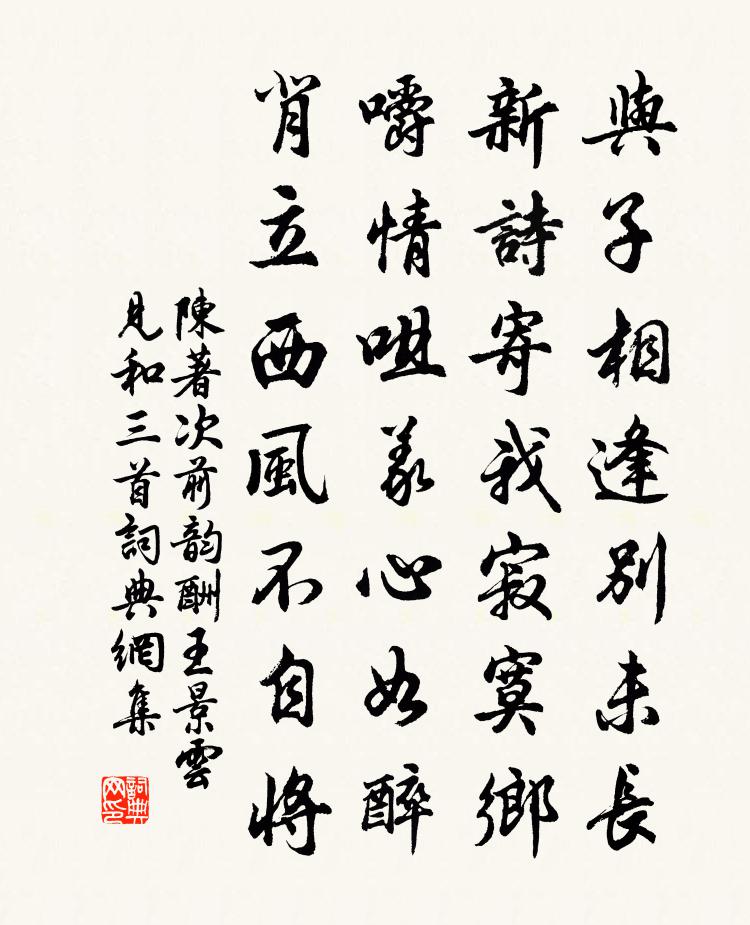 與子相逢別未長
新詩寄我寂寞鄉
嚼情咀義心如醉
肖立西風不自將
陳著次前韵酬王景雲
見和三首詞典網集
詞典网印